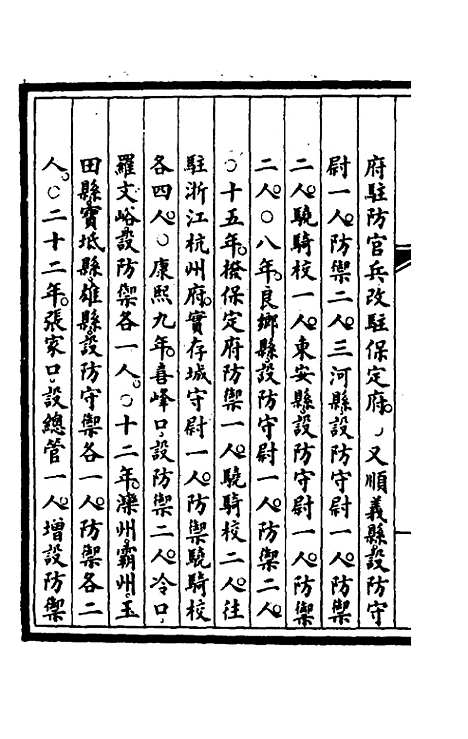 府駐防官兵改駐保定府。又順義縣設防守
尉一人。防禦二人。三河縣設防守尉一人。防禦
二人。驍騎校一人。東安縣設防守尉一人。防禦
二人。○八年。良鄉縣設防守尉一人。防禦二人。
○十五年。撥保定府防禦一人。驍騎校二人。往
駐浙江杭州府。實存城守尉一人。防禦驍騎校
各四人。○康熙九年。喜峰口設防禦二人。冷口、
羅文峪設防禦各一人。○十二年。灤州、霸州、玉
田縣、寶坻縣、雄縣設防守禦各一人。防禦各二
人。○二十二年。張家口設總管一人。增設防禦